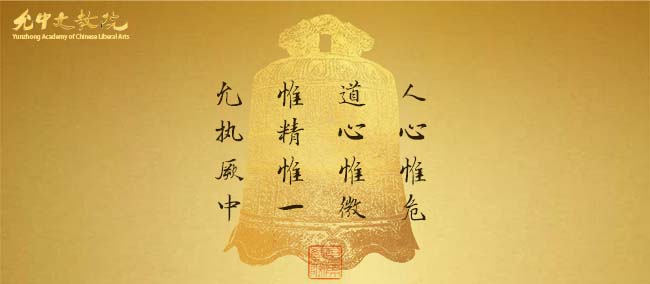 允中文教院
Yunzhong Academy of Chinese Liberal Arts
人心惟危
道心惟微
惟精惟一
允执厥中